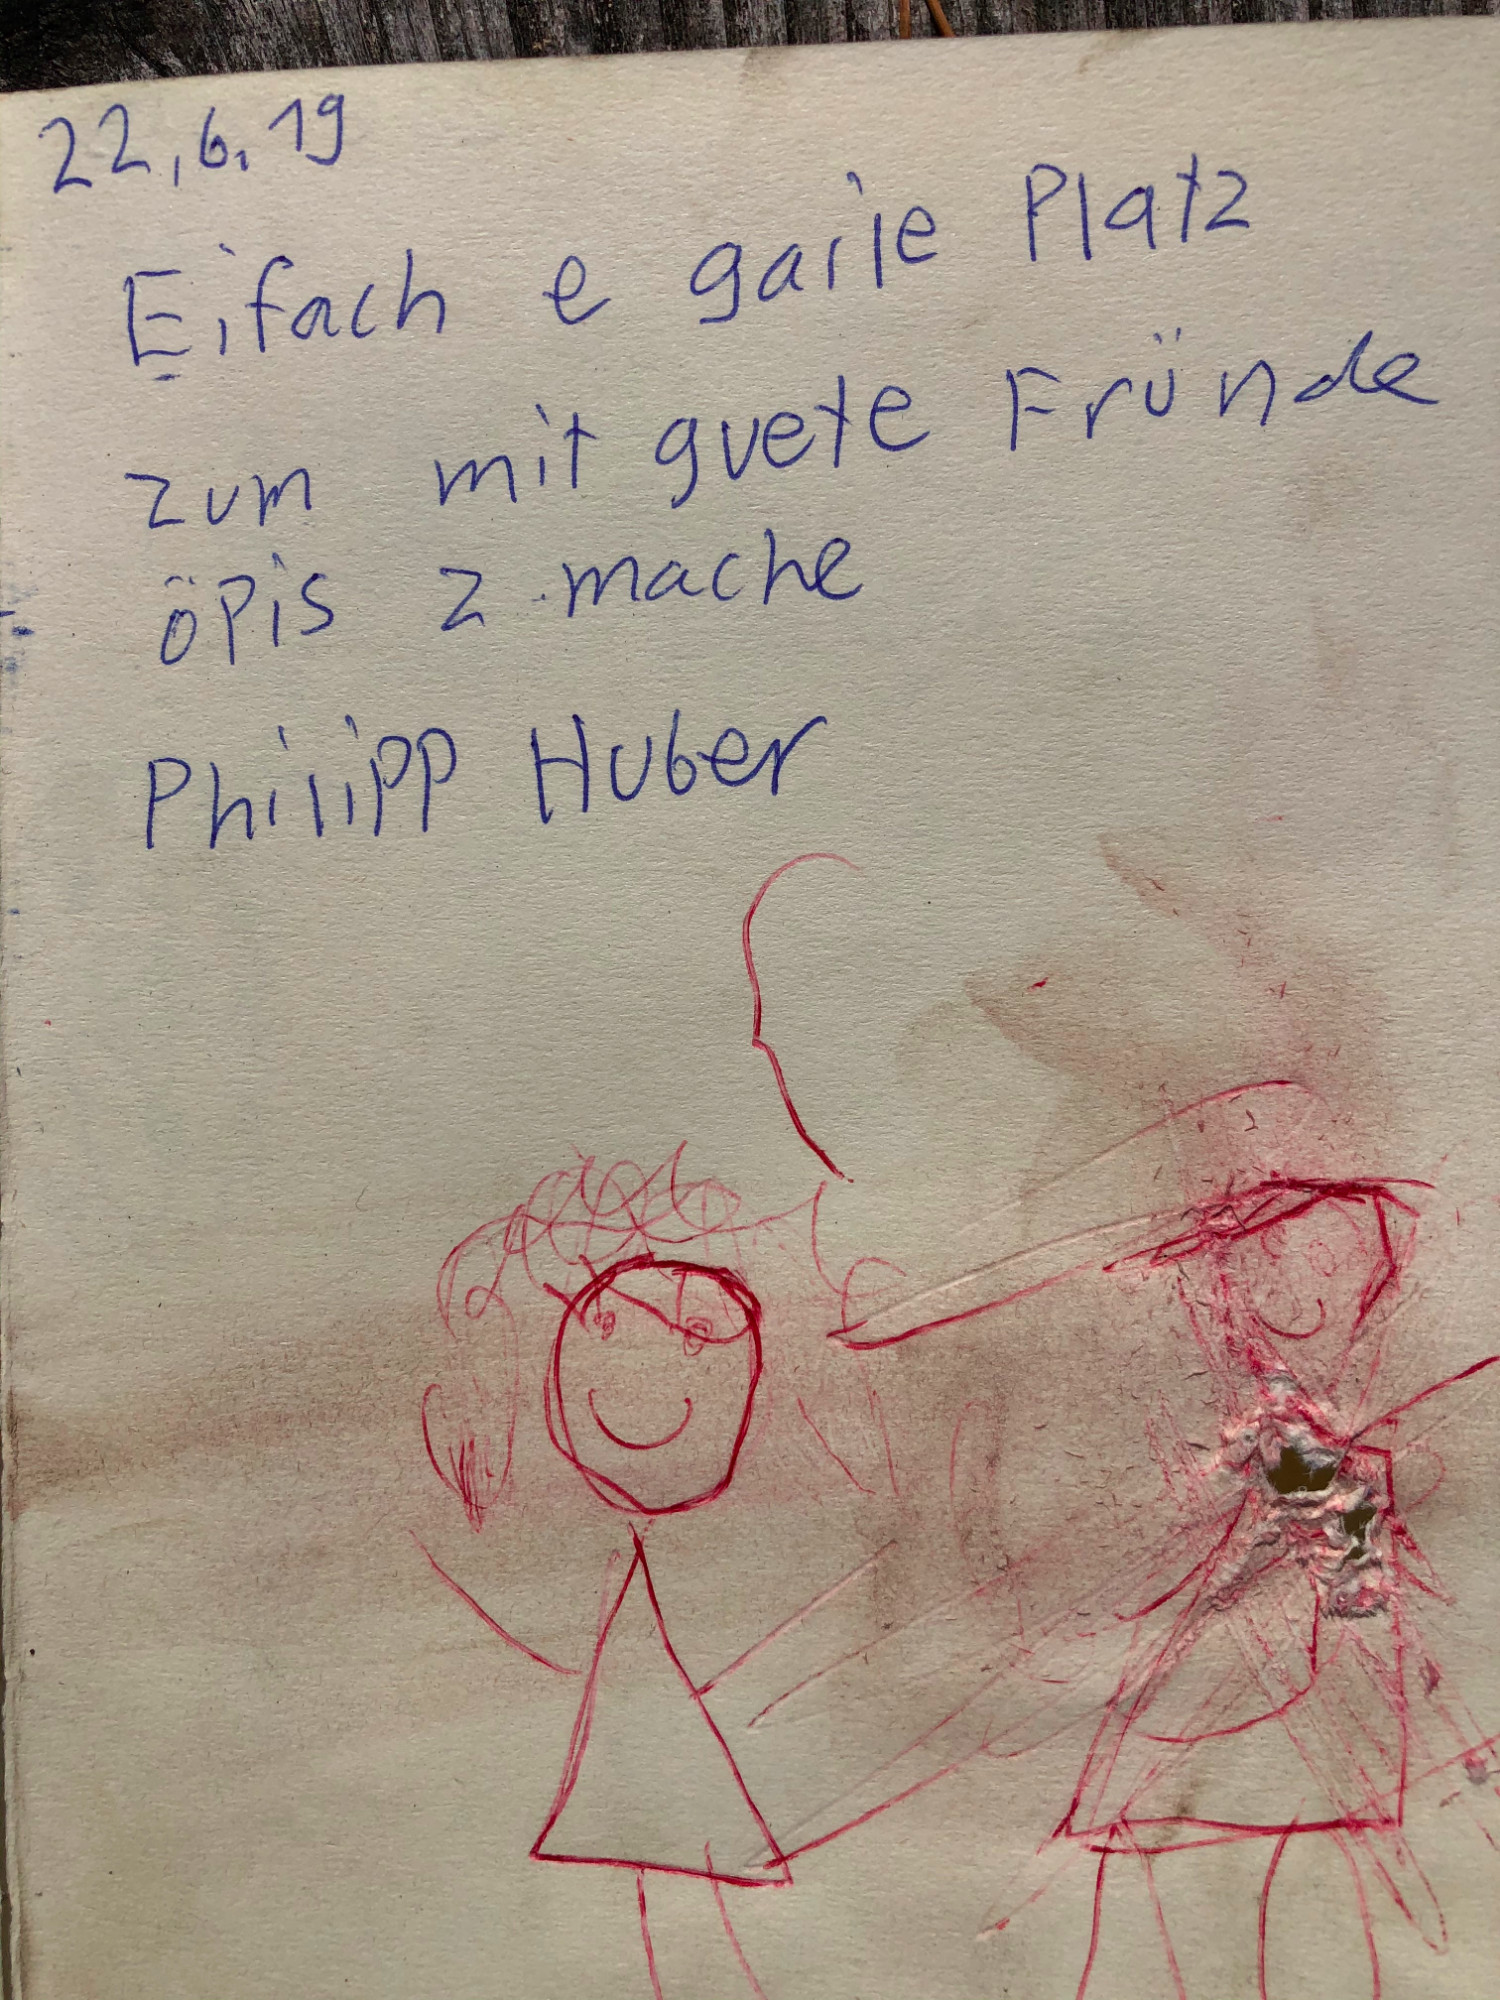 22.6.19
Eifach e gaile Platz
zum mit guete Fründe
öpis z mache
Philipp Huber